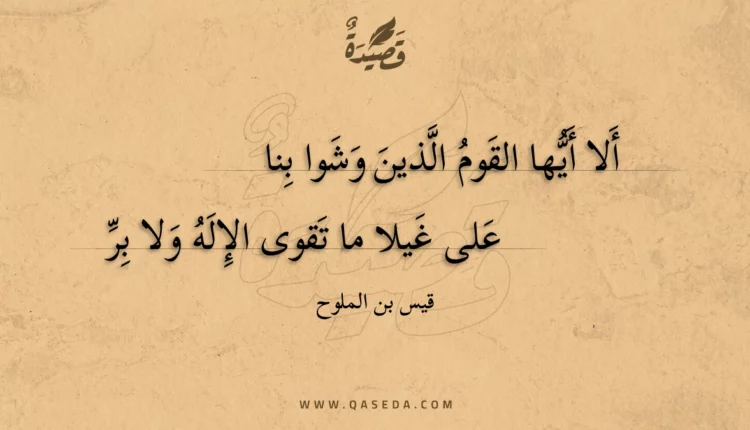 قَصِيدَةٌ
أَلا أَيُّها القَومُ الَّذينَ وَشَوا بِنا
عَلى غَيلا ما تَقوى الإِلَهُ وَلا بِرِّ
قيس بن الملوح
WWW.QASEDA.COM